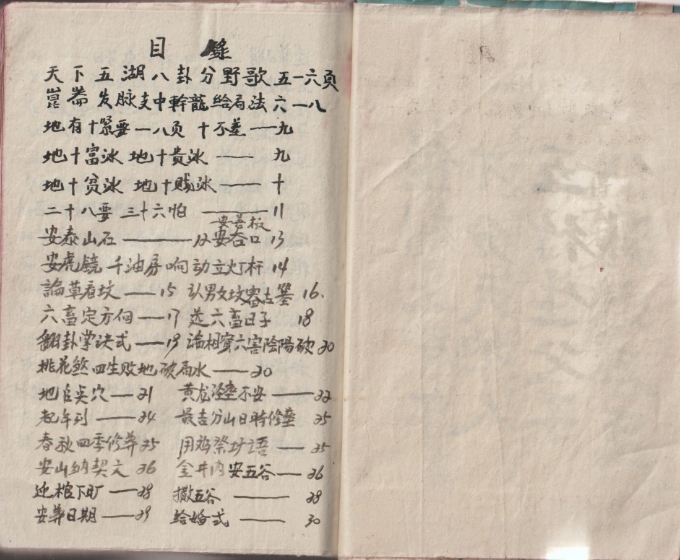 目錄
天下五湖八卦分野歌五一六页
崑崙发脉支中幹龍给局法六一八
地有十紧要一八页十不差——九
地十富冰 地十貴冰——九
地十贫冰 地十贱冰——十
二十八要 三十六怕——11
安善板
安泰山石———及安谷口 13
安虎镜 千油房响动立灯杆 14
論草看坟——15 认男女坟 16.
六畜定方向——17 选六畜日子 18
翻卦掌决式——19 論相穿六害陰陽砍 20
桃花煞四生败地破局水——20
地尖穴——21 黄龙不安——22
起年列——24 最吉分山日時修 25
春秋四季修葬 25 用鸡祭坟語——25
安山纳契文 26 金井内安五谷——26
迎棺下圹——28 撒五谷——28
安葬日期——29 给婚式——30